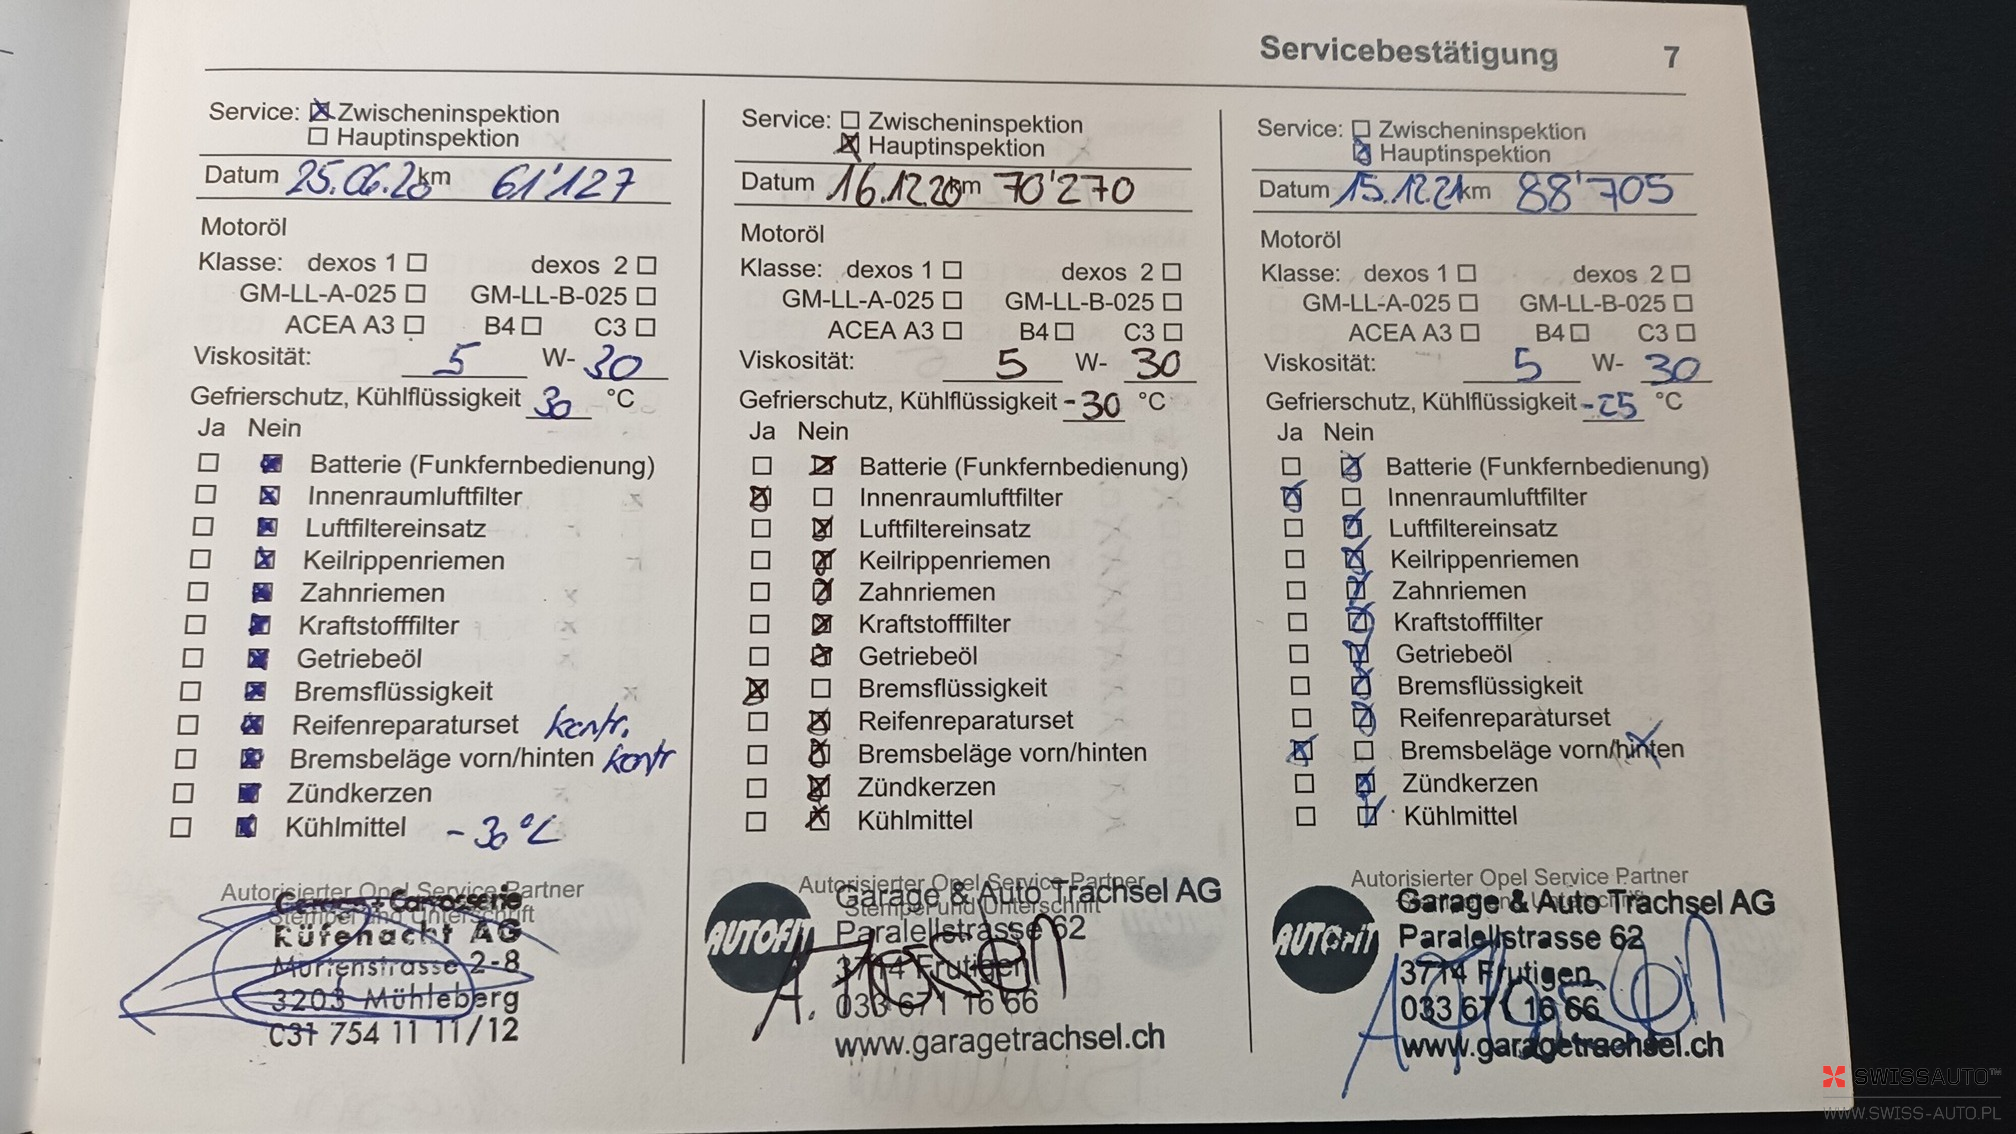 Servicebestätigung 7
Service: Zwischeninspektion
Hauptinspektion
Datum 25.06.20 km 61'127
Motoröl
Klasse: dexos 1 dexos 2
GM-LL-A-025 GM-LL-B-025
ACEA A3 B4 C3
Viskosität: 5 W- 30
Gefrierschutz, Kühlflüssigkeit 30 °C
Ja Nein
Batterie (Funkfernbedienung)
Innenraumluftfilter
Luftfiltereinsatz
Keilrippenriemen
Zahnriemen
Kraftstofffilter
Getriebeöl
Bremsflüssigkeit
Reifenreparaturset kontr.
Bremsbeläge vorn/hinten kontr
Zündkerzen
Kühlmittel -30°C
Autorisierter Opel Service Partner
Stempel und Unterschrift
Garage + Carrosserie
Rüfenacht AG
Murtenstrasse 2-8
3203 Mühleberg
031 754 11 11/12
Service: Zwischeninspektion
Hauptinspektion
Datum 16.12.20 km 70'270
Motoröl
Klasse: dexos 1 dexos 2
GM-LL-A-025 GM-LL-B-025
ACEA A3 B4 C3
Viskosität: 5 W- 30
Gefrierschutz, Kühlflüssigkeit -30 °C
Ja Nein
Batterie (Funkfernbedienung)
Innenraumluftfilter
Luftfiltereinsatz
Keilrippenriemen
Zahnriemen
Kraftstofffilter
Getriebeöl
Bremsflüssigkeit
Reifenreparaturset
Bremsbeläge vorn/hinten
Zündkerzen
Kühlmittel
Autorisierter Opel Service Partner
Stempel und Unterschrift
AUTOFIT
Garage & Auto Trachsel AG
Paralellstrasse 62
3714 Frutigen
033 671 16 66
www.garagetrachsel.ch
Service: Zwischeninspektion
Hauptinspektion
Datum 15.12.21 km 88'705
Motoröl
Klasse: dexos 1 dexos 2
GM-LL-A-025 GM-LL-B-025
ACEA A3 B4 C3
Viskosität: 5 W- 30
Gefrierschutz, Kühlflüssigkeit -25 °C
Ja Nein
Batterie (Funkfernbedienung)
Innenraumluftfilter
Luftfiltereinsatz
Keilrippenriemen
Zahnriemen
Kraftstofffilter
Getriebeöl
Bremsflüssigkeit
Reifenreparaturset
Bremsbeläge vorn/hinten
Zündkerzen
Kühlmittel
Autorisierter Opel Service Partner
AUTOFIT
Garage & Auto Trachsel AG
Paralellstrasse 62
3714 Frutigen
033 671 16 66
www.garagetrachsel.ch
SWISSAUTO™
WWW.SWISS-AUTO.PL